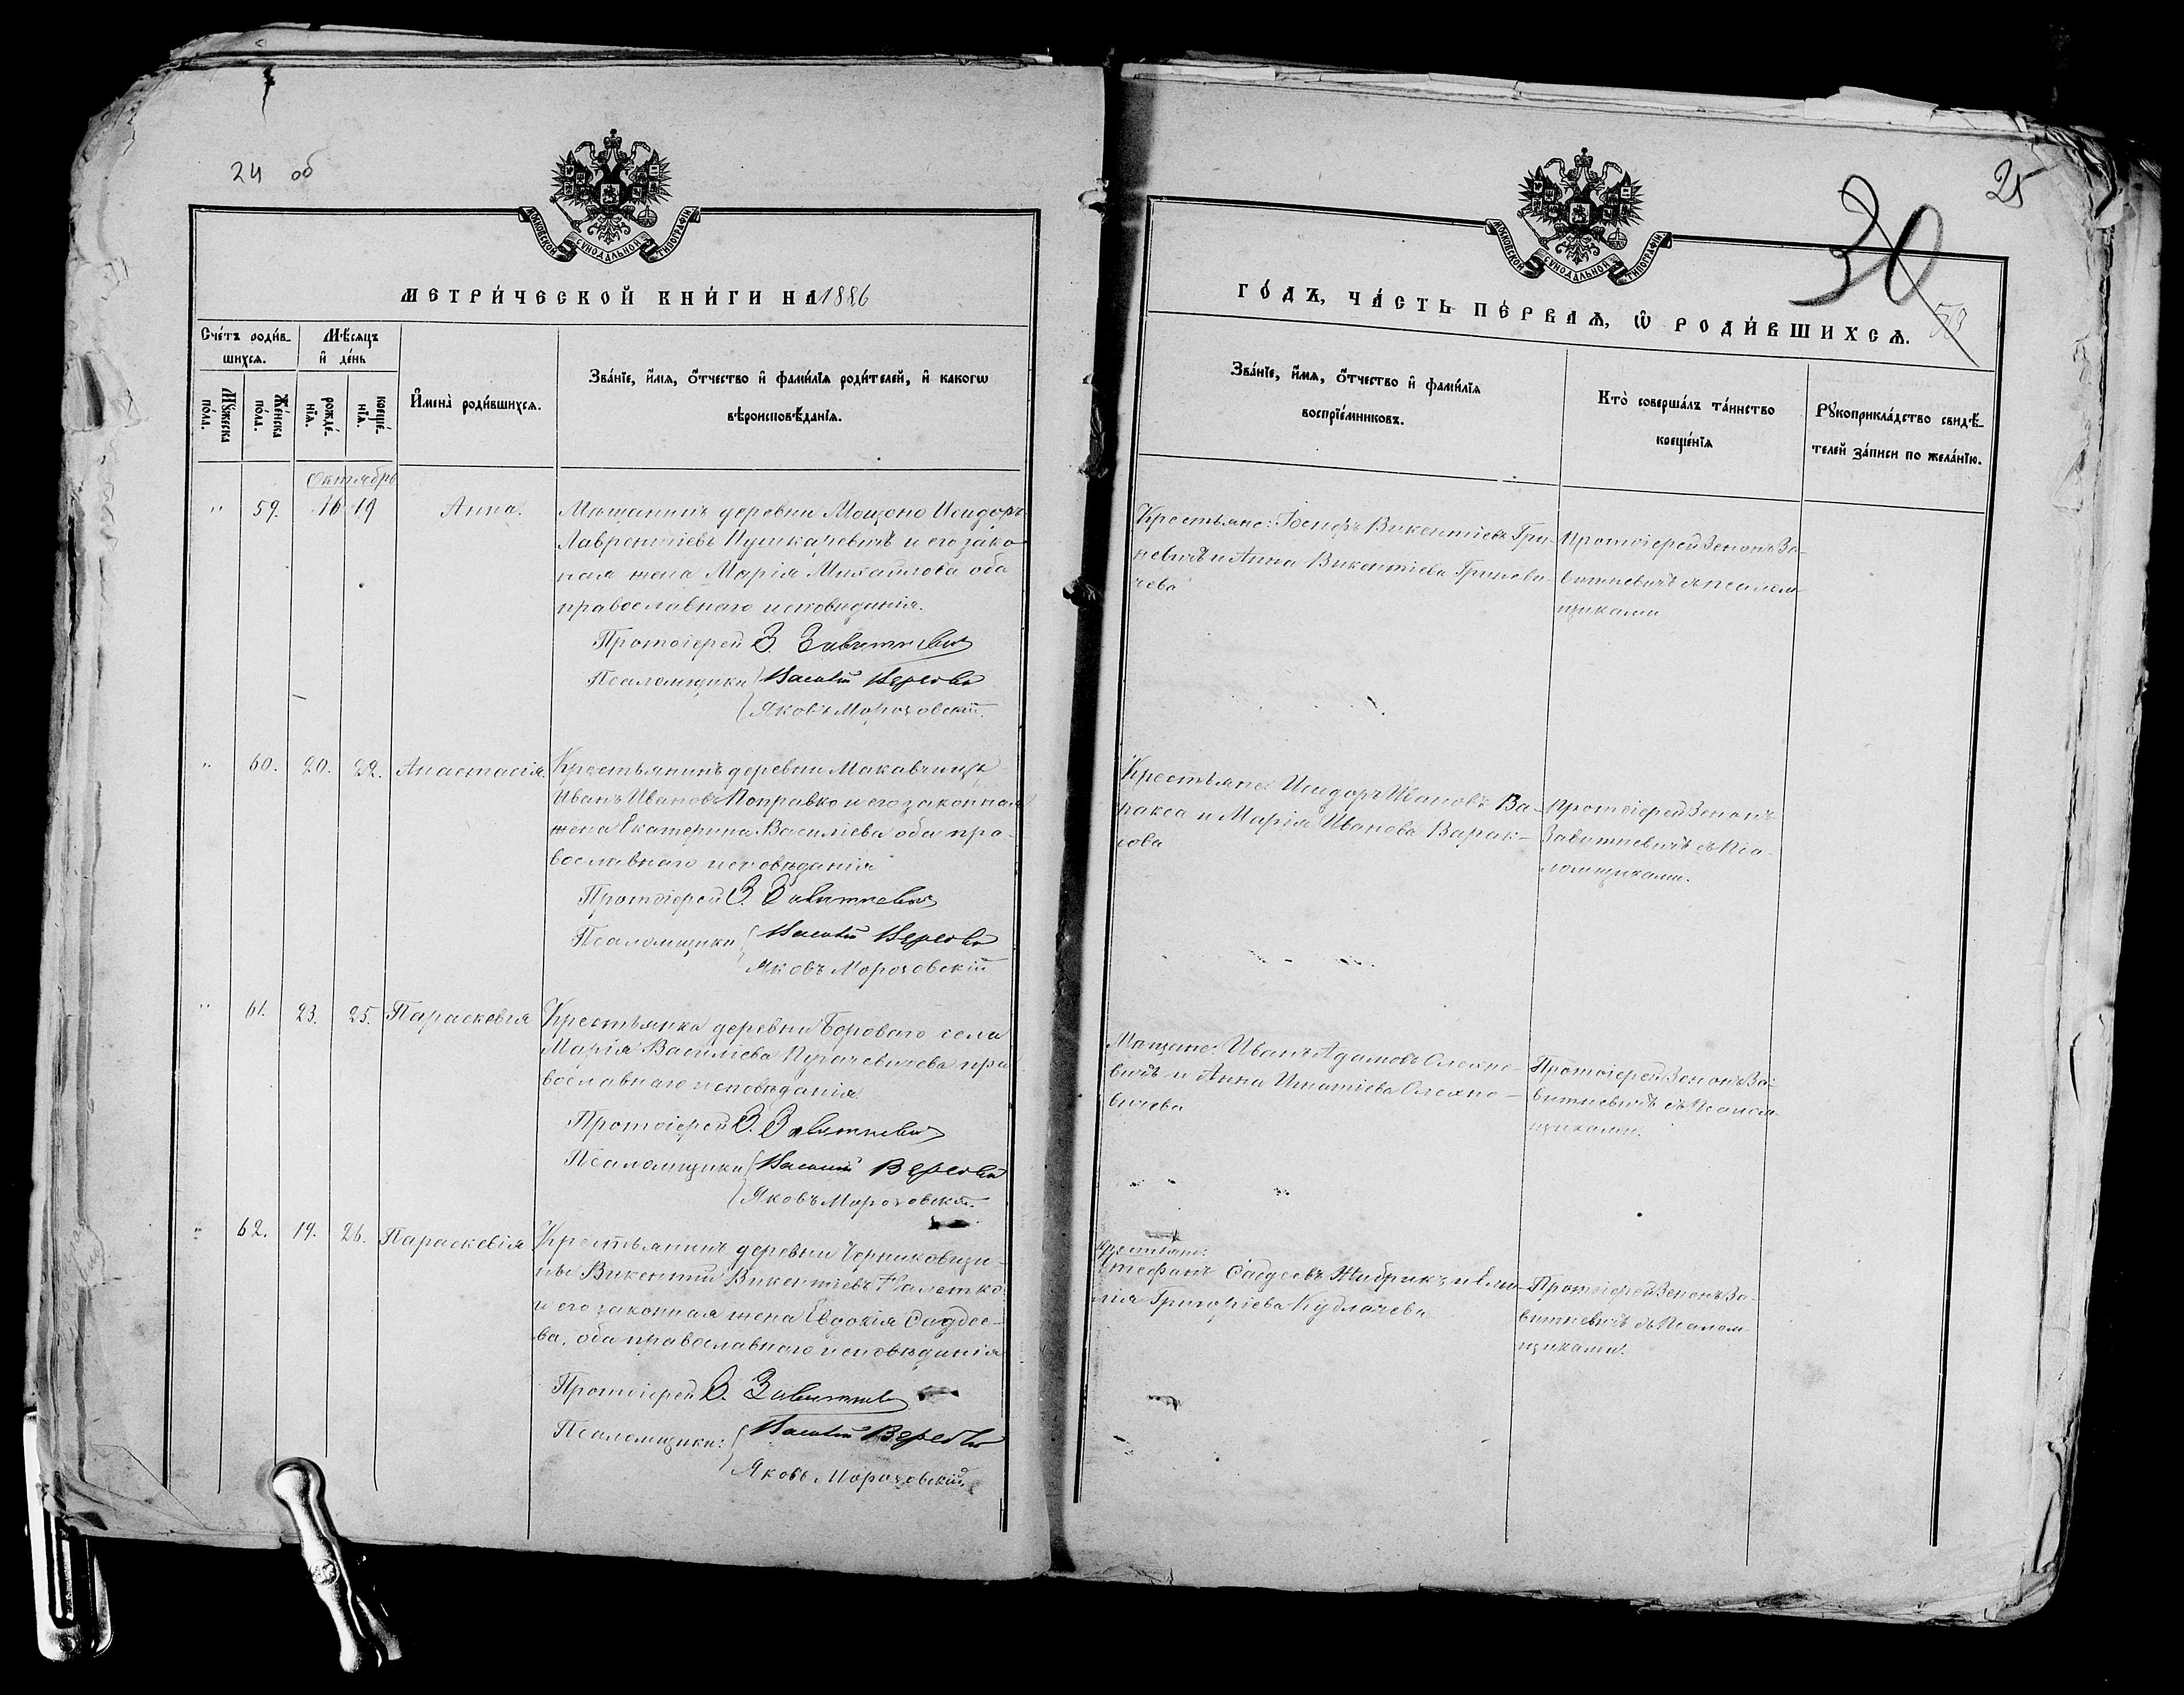 24 об
МОСКОВСКОЙ СѴНОДАЛЬНОЙ ТИПОГРАФІИ
МЕТРИ́ЧЕСКОЙ КНИ́ГИ НА 1886
Сче́тъ роди́в-
шихся.
Мѣ́сяцъ
и҆ де́нь
Мꙋ́жеска
по́ла.
Же́нска
по́ла.
рожде́-
нїя.
креще́-
нїя.
И҆мена̀ роди́вшихся.
Зва́нїе, и҆́мя, ѻ҆́тчество и҆ фами́лїя роди́телей, и҆ какогѡ
вѣроисповѣ́данїя.
Октябрь
" 59. 16 19 Анна.
Мѣщанинъ деревни Мощоно Исидоръ
Лаврентіевъ Пушкачевичъ и его зако
ная жена Марія Михаилова оба
православнаго исповѣданія.
Протоіерей З. Завитневичъ
Псаломщики Василій Вересовъ
Яковъ Морозовскій.
" 60. 20. 22. Анастасія.
Крестьянинъ деревни Макавчицъ
Иванъ Ивановъ Поправко и его законная
жена Екатерина Василіева оба пра-
вославнаго исповѣданія
Протоіерей З. Завитневичъ
Псаломщики Василій Вересовъ
Яковъ Морозовскій
" 61. 23. 25. Параскевія
Крестьянка деревни Бороваго села
Марія Василіева Пугачевичева пра
вославнаго исповѣданія.
Протоіерей З. Завитневичъ
Псаломщики Василій Вересовъ
Яковъ Морозовскій.
" 62. 19. 26. Параскевія
Крестьянинъ деревни Черниковщи-
ны Викентій Викентіевъ Налетко
и его законная жена Евдокія Фаддее-
ва, оба православнаго исповѣданія
Протоіерей З. Завитневичъ
Псаломщики: Василій Вересовъ
Яковъ Морозовскій.
25
30
МОСКОВСКОЙ СѴНОДАЛЬНОЙ ТИПОГРАФІИ
ГО́ДЪ, ЧА́СТЬ ПЕ́РВАЯ, Ѡ҆ РОДИ́ВШИХСЯ.
Зва́нїе, и҆́мя, ѻ҆́тчество и҆ фами́лїя
воспрїе́мниковъ.
Кто̀ соверша́лъ та́инство
креще́нїя
Рꙋкоприкла́дство свидѣ́-
телей за́писи по жела́нїю.
Крестьяне: Іосифъ Викентіевъ Гри-
невичъ и Анна Викентіева Гринови-
чева
Протоіерей Зенонъ За-
витневичъ съ псалом-
щиками
Крестьяне: Исидоръ Ивановъ Ва-
ракса и Марія Иванова Варак-
сова
Протоіерей Зенонъ
Завитневичъ съ Пса-
ломщиками.
Мѣщане: Иванъ Адамовъ Олехно-
вичъ и Анна Игнатіева Олехно-
вичева
Протоіерей Зенонъ За-
витневичъ съ Псалом-
щиками.
Крестьяне:
Стефанъ Фаддеевъ Жибрикъ и Ели-
лія Григоріева Кудлачева
Протоіерей Зенонъ За-
витневичъ съ Псалом-
щиками.